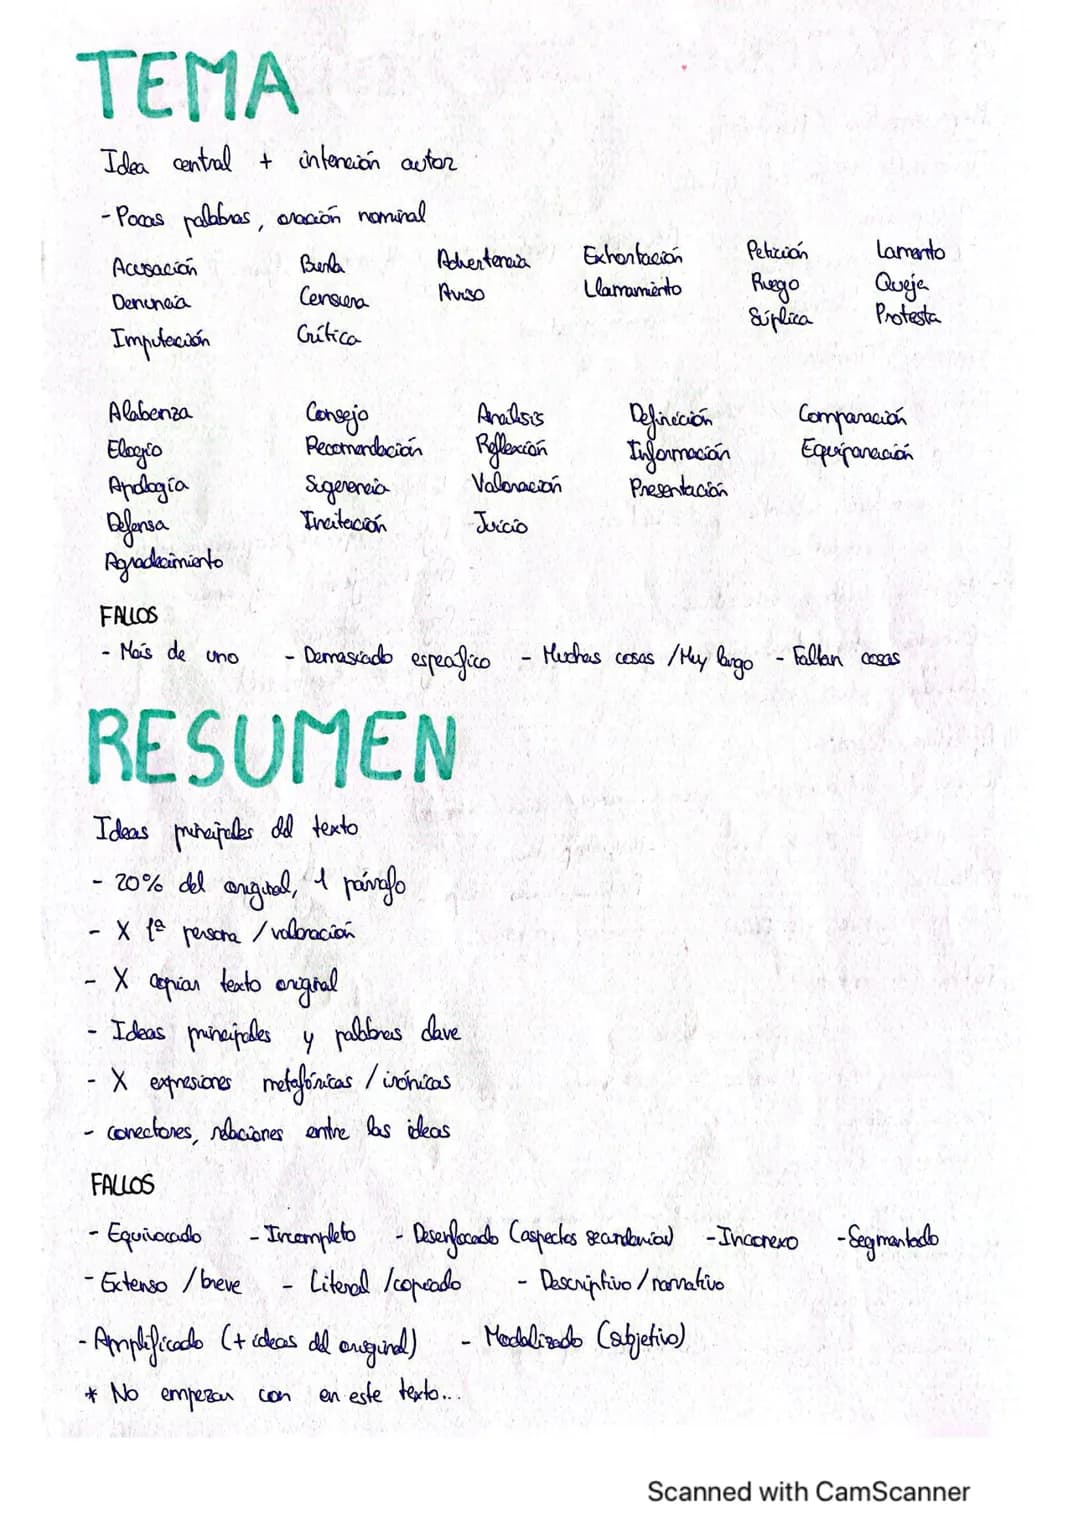 TEMA
Idea central + intención autor
- Pocas palabras, oración nominal
Acusación Burla Advertencia Exhortación Petición Lamento
Denuncia Censura Aviso Llamamiento Ruego Queja
Imputación Crítica Súplica Protesta
Alabenza Consejo Análisis Definición Comparación
Elogio Recomendación Reflexión Información Equiparación
Apología Sugerencia Valoración Presentación
Defensa Incitación Juicio
Agradecimiento
FALLOS
- Más de uno - Demasiado específico - Muchas cosas / Muy largo - Faltan cosas
RESUMEN
Ideas principales del texto
- 20% del original, 1 párrafo
- X 1ª persona / valoración
- X copiar texto original
- Ideas principales y palabras clave
- X expresiones metafóricas / irónicas
- conectores, relaciones entre las ideas
FALLOS
- Equivocado - Incompleto - Desenfocado (aspectos secundarios) - Inconexo - Segmentado
- Extenso / breve - Literal / copiado - Descriptivo / narrativo
- Amplificado (+ ideas del original) - Modalizado (subjetivo)
* No empezar con en este texto...
Scanned with CamScanner